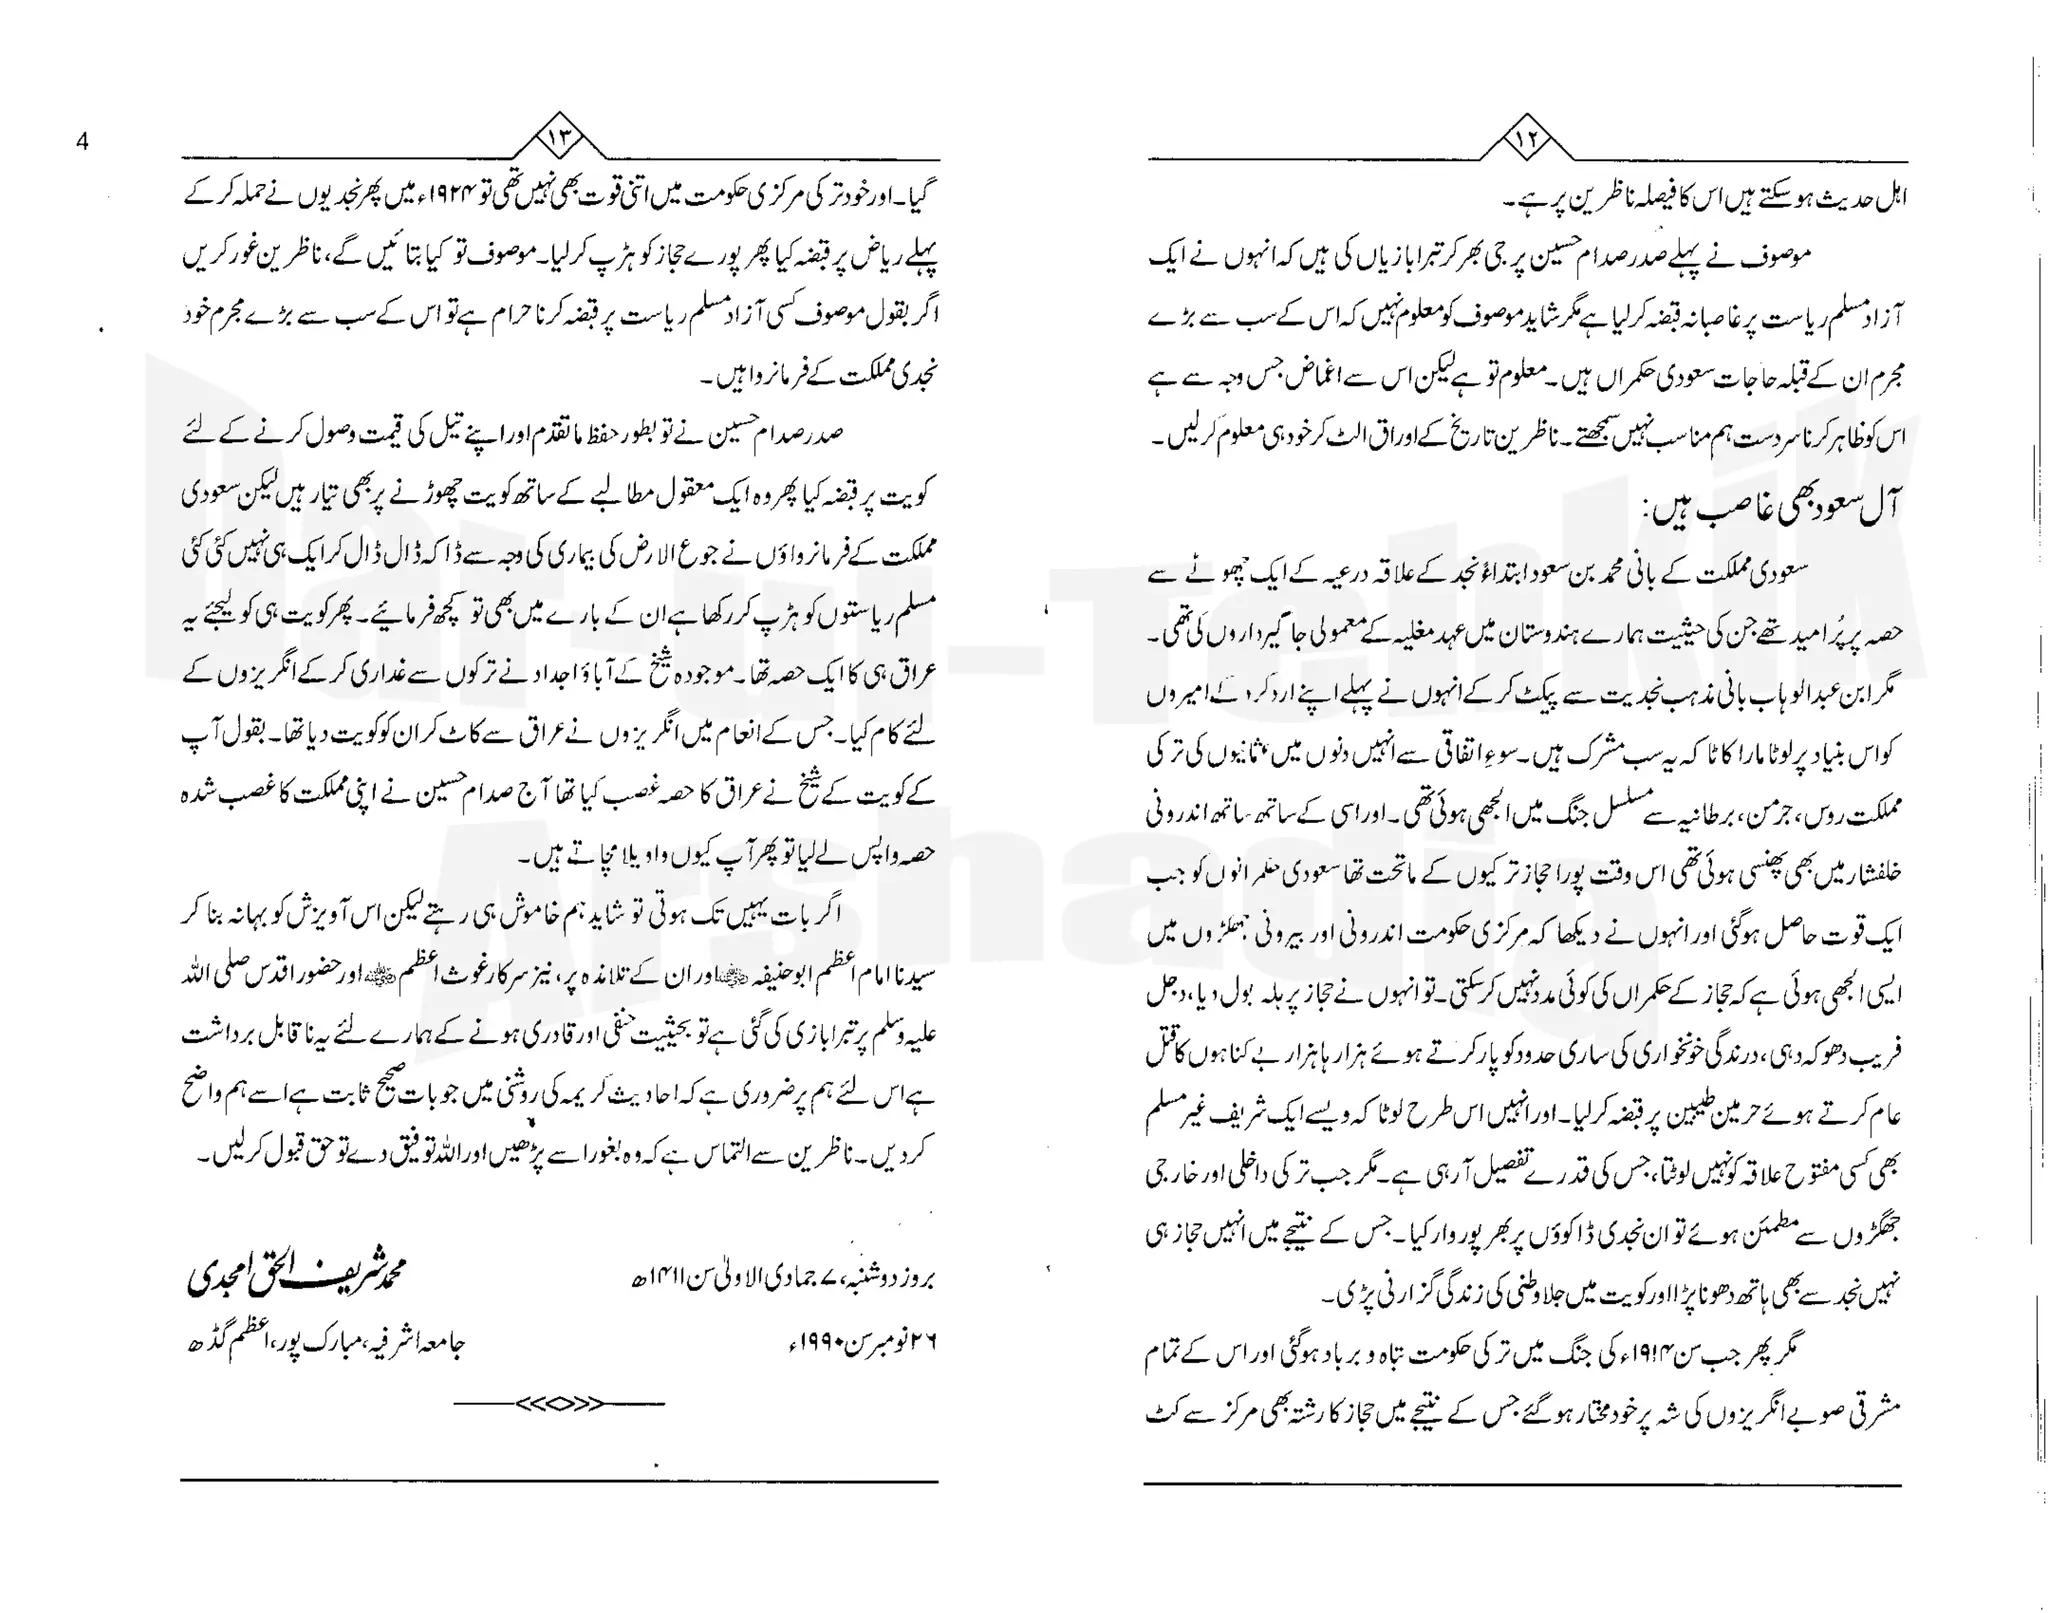 ۱۲
اہل حدیث ہو سکتے ہیں اس کا فیصلہ ناظرین پر ہے۔
موصوف نے پہلے صدر صدام حسین پر جی بھر کر تبرا بازیاں کی ہیں کہ انہوں نے ایک
آزاد مسلم ریاست پر غاصبانہ قبضہ کر لیا ہے مگر شاید موصوف کو معلوم نہیں کہ اس کے سب سے بڑے
مجرم ان کے قبلہ حاجات سعودی حکمراں ہیں۔ معلوم تو ہے لیکن اس سے اغماض جس وجہ سے ہے
اس کو ظاہر کرنا سردست ہم مناسب نہیں سمجھتے۔ ناظرین تاریخ کے اوراق الٹ کر خود ہی معلوم کرلیں۔
آل سعود بھی غاصب ہیں:
سعودی مملکت کے بانی محمد بن سعود ابتداءً نجد کے علاقہ درعیہ کے ایک چھوٹے سے
حصہ پر پُر امید تھے جن کی حیثیت ہمارے ہندوستان میں عہد مغلیہ کے معمولی جاگیرداروں کی تھی۔
مگر ابن عبدالوہاب بانی مذہب نجدیت سے پیکٹ کر کے انہوں نے پہلے اپنے اردگرد کے امیروں
کو اس بنیاد پر لوٹا مارا کاٹا کہ یہ سب مشرک ہیں۔ سوءِ اتفاق سے انہیں دنوں میں عثمانیوں کی ترکی
مملکت روس، جرمن، برطانیہ سے مسلسل جنگ میں الجھی ہوئی تھی۔ اور اسی کے ساتھ ساتھ اندرونی
خلفشار میں بھی پھنسی ہوئی تھی اس وقت پورا حجاز ترکیوں کے ماتحت تھا سعودی حکمرانوں کو جب
ایک قوت حاصل ہوگئی اور انہوں نے دیکھا کہ مرکزی حکومت اندرونی اور بیرونی جھگڑوں میں
ایسی الجھی ہوئی ہے کہ حجاز کے حکمراں کی کوئی مدد نہیں کر سکتی۔ تو انہوں نے حجاز پر ہلہ بول دیا، دجل
فریب دھوکہ دہی، درندگی خونخواری کی ساری حدود کو پار کرتے ہوئے ہزارہا ہزار بے گناہوں کا قتل
عام کرتے ہوئے حرمین طیبین پر قبضہ کر لیا۔ اور انہیں اس طرح لوٹا کہ ویسے ایک شریف غیر مسلم
بھی کسی مفتوح علاقہ کو نہیں لوٹتا، جس کی قدرے تفصیل آرہی ہے۔ مگر جب ترکی داخلی اور خارجی
جھگڑوں سے مطمئن ہوئے تو ان نجدی ڈاکوؤں پر بھرپور وار کیا۔ جس کے نتیجے میں انہیں حجاز ہی
نہیں نجد سے بھی ہاتھ دھونا پڑا اور کویت میں جلا وطنی کی زندگی گزارنی پڑی۔
مگر پھر جب سن ۱۹۱۴ء کی جنگ میں ترکی حکومت تباہ و برباد ہوگئی اور اس کے تمام
مشرقی صوبے انگریزوں کی شہ پر خود مختار ہو گئے جس کے نتیجے میں حجاز کا رشتہ بھی مرکز سے کٹ
4
۱۳
گیا۔ اور خود ترکی مرکزی حکومت میں اتنی قوت بھی نہیں تھی تو ۱۹۲۴ء میں پھر نجدیوں نے حملہ کر کے
پہلے ریاض پر قبضہ کیا پھر پورے حجاز کو ہڑپ کر لیا۔ موصوف تو کیا بتائیں گے، ناظرین غور کریں
اگر بقول موصوف کسی آزاد مسلم ریاست پر قبضہ کرنا حرام ہے تو اس کے سب سے بڑے مجرم خود
نجدی مملکت کے فرمانروا ہیں۔
صدر صدام حسین نے تو بطور حفظ ما تقدم اور اپنے تیل کی قیمت وصول کرنے کے لئے
کویت پر قبضہ کیا پھر وہ ایک معقول مطالبے کے ساتھ کویت چھوڑنے پر بھی تیار ہیں لیکن سعودی
مملکت کے فرمانرواؤں نے جوع الارض کی بیماری کی وجہ سے ڈاکہ ڈال ڈال کر ایک ہی نہیں کئی کئی
مسلم ریاستوں کو ہڑپ کر رکھا ہے ان کے بارے میں بھی تو کچھ فرمائیے۔ پھر کویت ہی کو لیجئے یہ
عراق ہی کا ایک حصہ تھا۔ موجودہ شیخ کے آباؤ اجداد نے ترکوں سے غداری کر کے انگریزوں کے
لئے کام کیا۔ جس کے انعام میں انگریزوں نے عراق سے کاٹ کر ان کو کویت دیا تھا۔ بقول آپ
کے کویت کے شیخ نے عراق کا حصہ غصب کیا تھا آج صدام حسین نے اپنی مملکت کا غصب شدہ
حصہ واپس لے لیا تو پھر آپ کیوں واویلا مچاتے ہیں۔
اگر بات یہیں تک ہوتی تو شاید ہم خاموش ہی رہتے لیکن اس آویزش کو بہانہ بنا کر
سیدنا امام اعظم ابوحنیفہ ؓ اور ان کے تلامذہ پر، نیز سرکار غوث اعظم ؓ اور حضور اقدس صلی اللہ
علیہ وسلم پر تبرا بازی کی گئی ہے تو بحیثیت حنفی اور قادری ہونے کے ہمارے لئے یہ ناقابل برداشت
ہے اس لئے ہم پر ضروری ہے کہ احادیث کریمہ کی روشنی میں جو بات صحیح ثابت ہے اسے ہم واضح
کردیں۔ ناظرین سے التماس ہے کہ وہ بغور اسے پڑھیں اور اللہ توفیق دے تو حق قبول کرلیں۔
محمد شریف الحق امجدی
بروز دوشنبہ، ۷ جمادی الاولیٰ سن ۱۴۱۱ھ
جامعہ اشرفیہ، مبارک پور، اعظم گڈھ
۲۶ نومبر سن ۱۹۹۰ء
Dar-ul-Tehkik
Arshadia